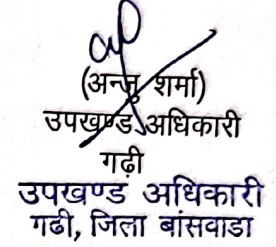 (अन्जु शर्मा)
उपखण्ड अधिकारी
गढ़ी
उपखण्ड अधिकारी
गढी, जिला बांसवाडा